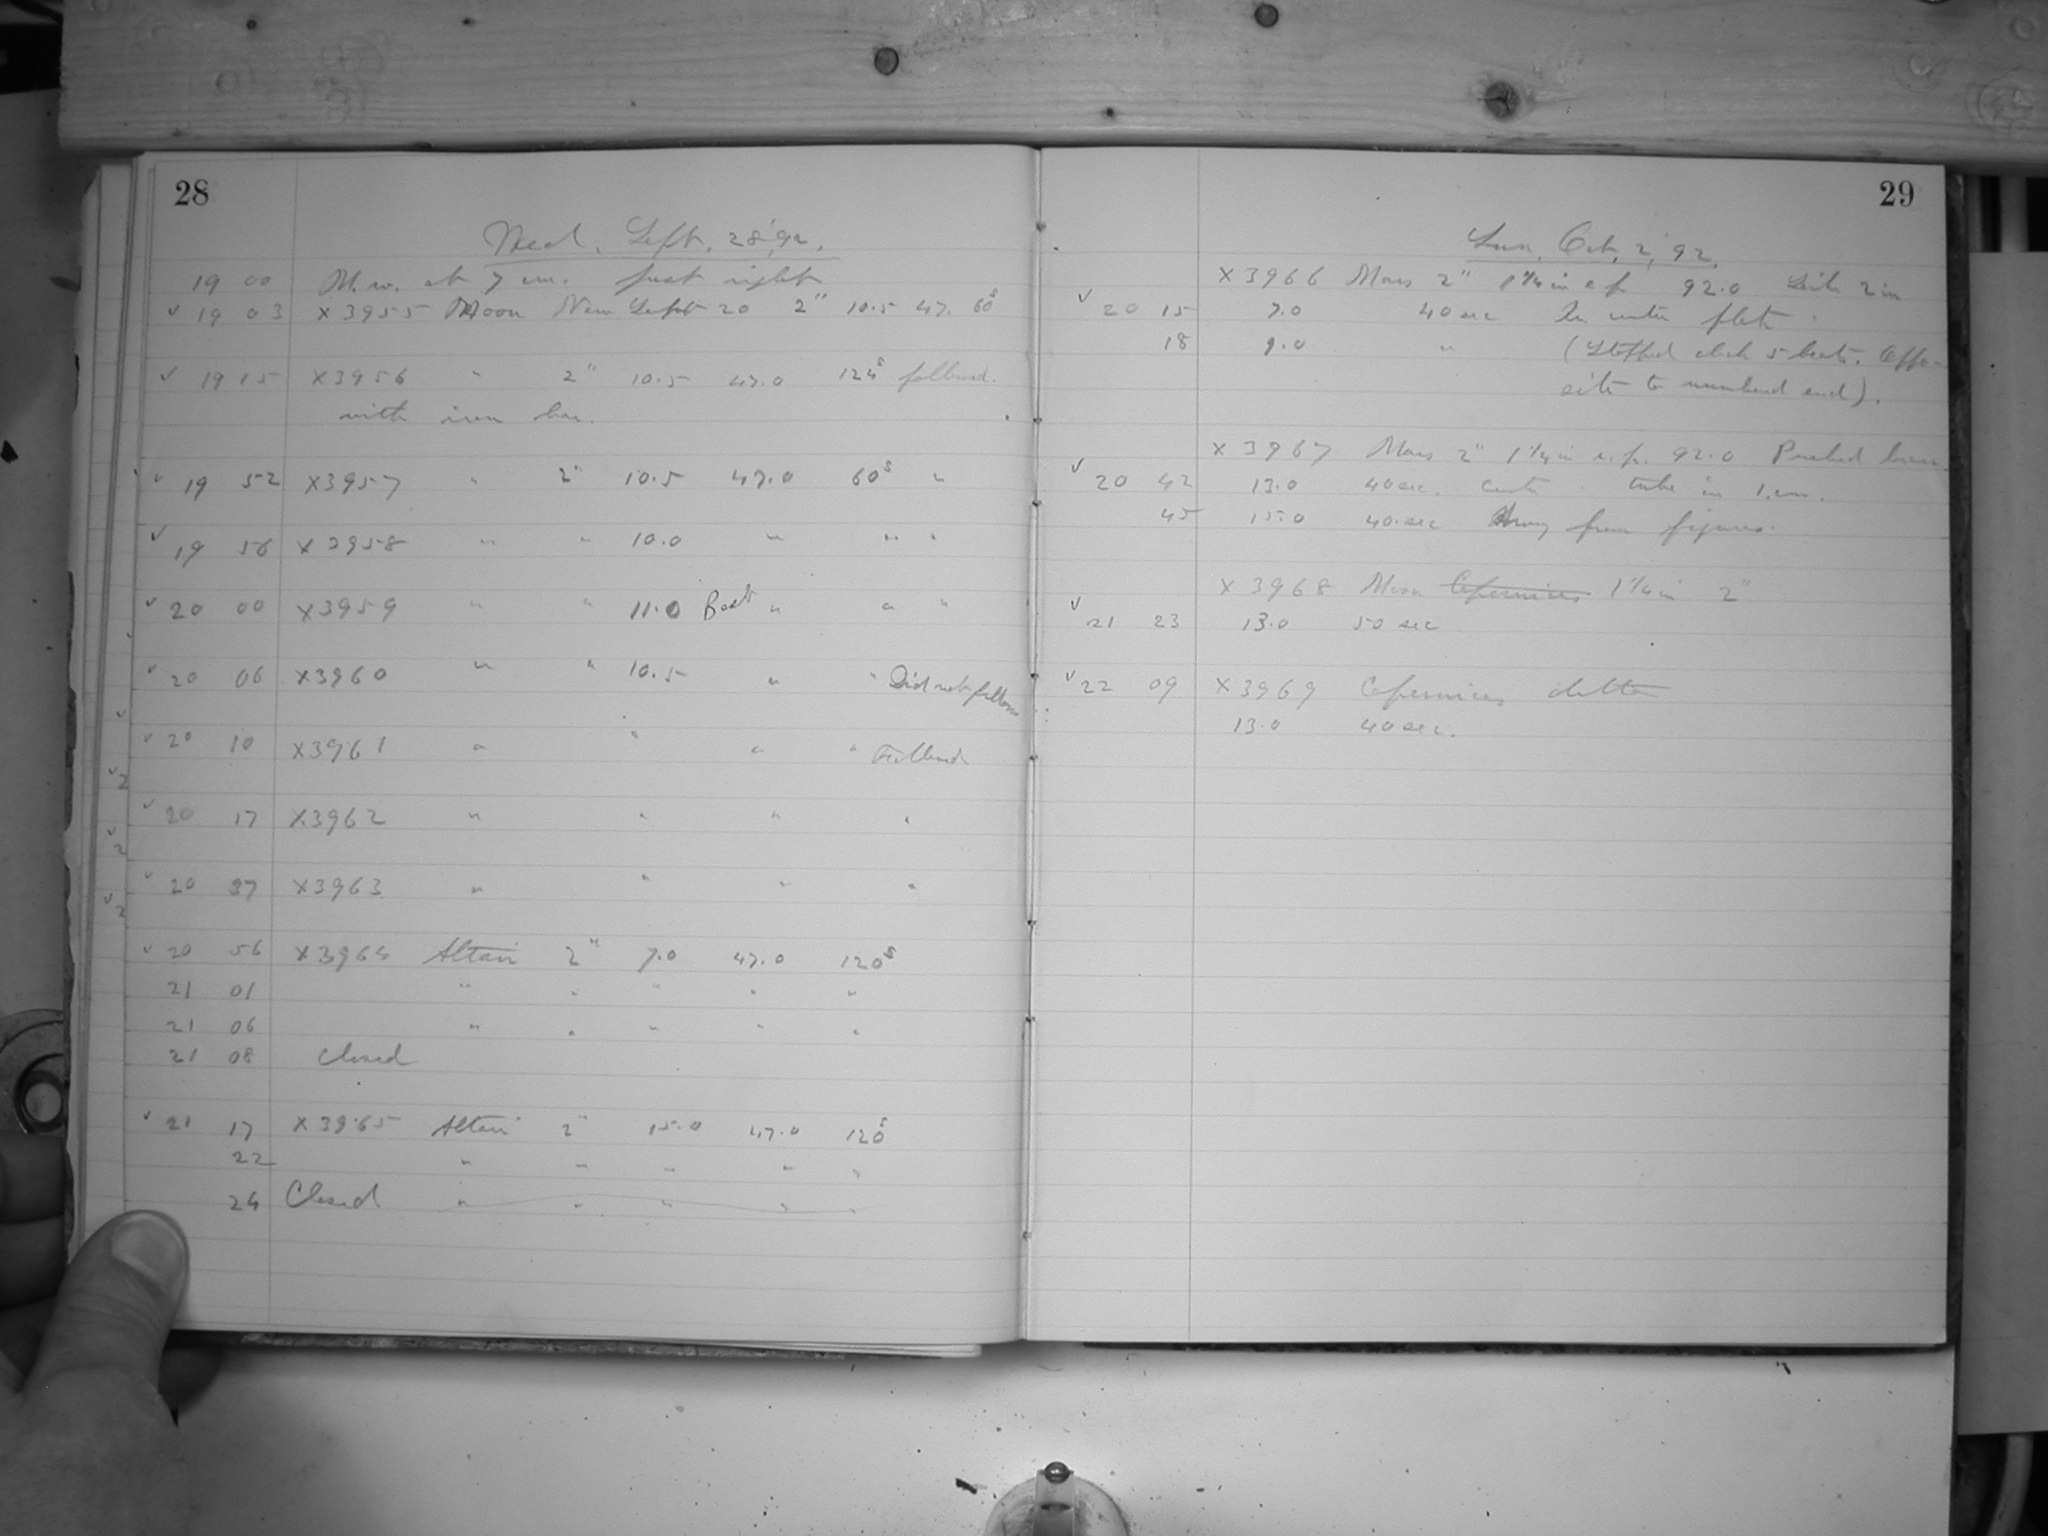 28
Wed. Sept. 28, '92.
19 00 M. w. at 7 cm. just right
v 19 03 x 3955 Moon New Sept 20 2" 10.5 47. 60s
v 19 15 x 3956 " 2" 10.5 47.0 124s followed.
with iron bar.
v 19 52 x 3957 " 2" 10.5 47.0 60s "
v 19 56 x 3958 " " 10.0 " " "
v 20 00 x 3959 " " 11.0 Best " " "
v 20 06 x 3960 " " 10.5 " " Did not follow
v
v 20 10 x 3961 " " " " Followed
v 2
v 20 17 x 3962 " " " "
v 2
v 20 37 x 3963 " " " "
v 2
v 20 56 x 3964 Altair 2" 7.0 47.0 120s
21 01 " " " " "
21 06 " " " " "
21 08 Closed
v 21 17 x 3965 Altair 2" 15.0 47.0 120s
22 " " " " "
24 Closed " " " " "
29
Sun. Oct. 2, '92.
x 3966 Mars 2" 1 1/4 in e. p. 92.0 2 in
v 20 15 7.0 40 sec In center plate
18 9.0 " (Stopped clock 5 beats. Oppo-
site to numbered end).
x 3967 Mars 2" 1 1/4 in e. p. 92.0 Pushed
v 20 42 13.0 40 sec. tube in 1. cm.
45 15.0 40. sec Away from figures.
x 3968 Moon Copernicus 1 1/4 in 2"
v 21 23 13.0 50 sec
v 22 09 x 3969 Copernicus ditto
13.0 40 sec.